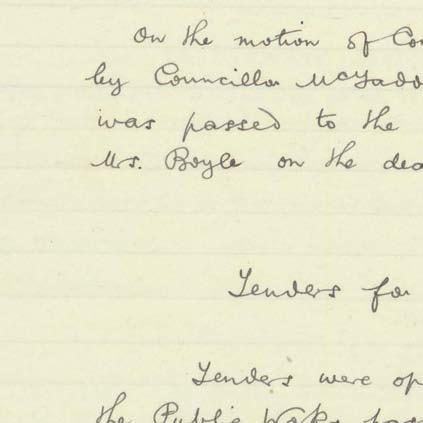 On the motion of Co
by Councillor McFadd
was passed to the
Mrs. Boyle on the dea
Tenders for
Tenders were op
the Public Works pass